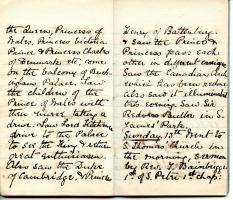 the Queen, Princess of
Wales, Princess Victoria
Prince & Princess Charles
of Denmark etc, come
on the balcony of Buck-
ingham Palace. Saw
the children of the
Prince of Wales with
their nurse taking a
drive. Saw Lord Kitchener
drive to the Palace
to see the King & return
great enthusiasm.
Also saw the Duke
of Cambridge, & Princess
Henry of Battenburg
& Saw the Prince &
Princess pass each
other in different carriages
Saw the Canadian Arch
which has been
Also saw it illuminated
this evening Saw Sir
Redvers Buller in S.
James' Park.
Sunday 13th Went to
S. Thomas Church in
the morning, sermon
by Rev. J. Bainbridge
1st of S. Peter 1st chap: